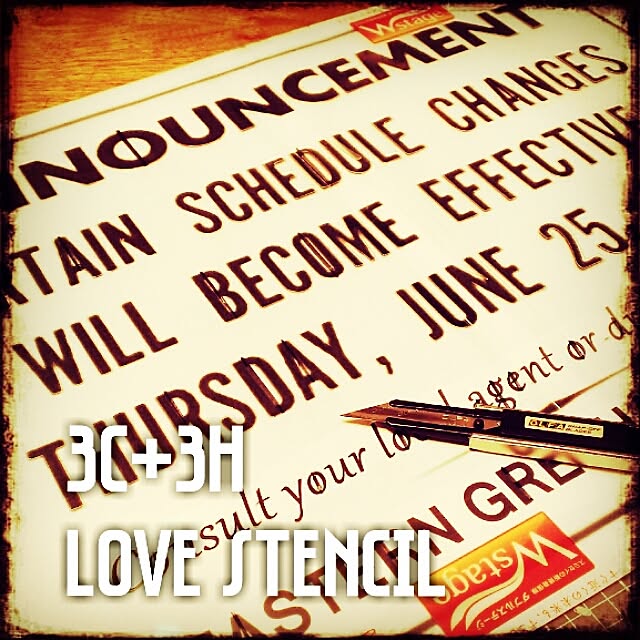 Wstage
NNOUNCEMENT
RTAIN SCHEDULE CHANGES
WILL BECOME EFFECTIVE
THURSDAY, JUNE 25
Consult your local agent or d
OLFA
STERN GRE
3C+3H
LOVE STENCIL
Wstage
ダブルステージ